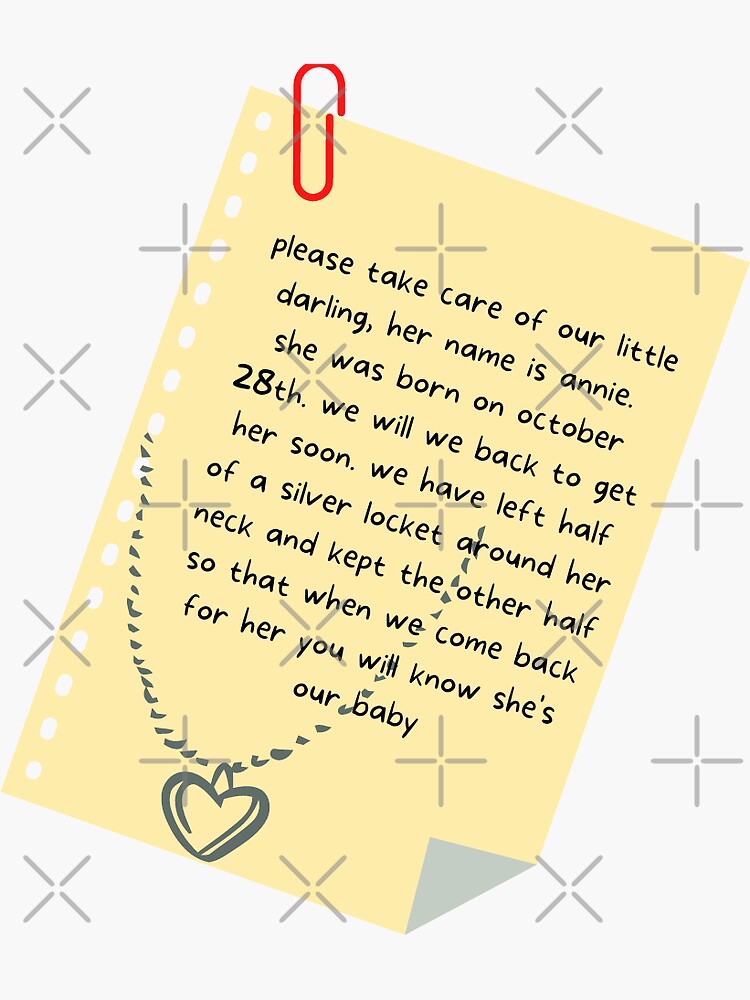 please take care of our little
darling, her name is annie.
she was born on october
28th. we will we back to get
her soon. we have left half
of a silver locket around her
neck and kept the other half
so that when we come back
for her you will know she's
our baby